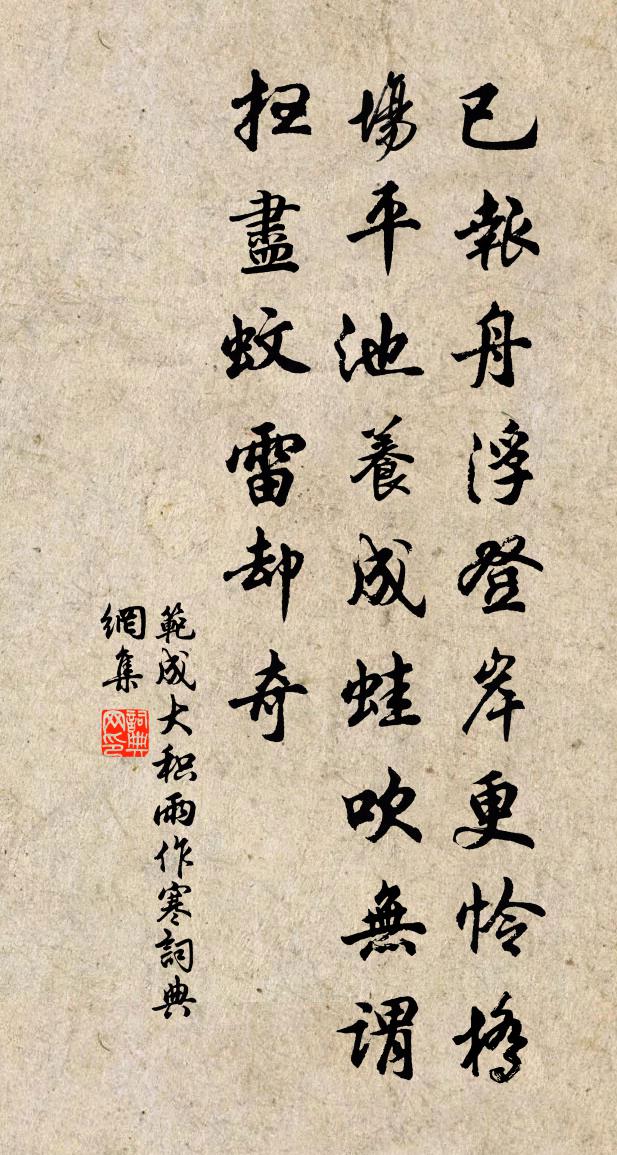 已報舟浮登岸更怜橋
塌平池養成蛙吹無謂
扫盡蚊雷却奇
範成大积雨作寒詞典
網集
詞典网印